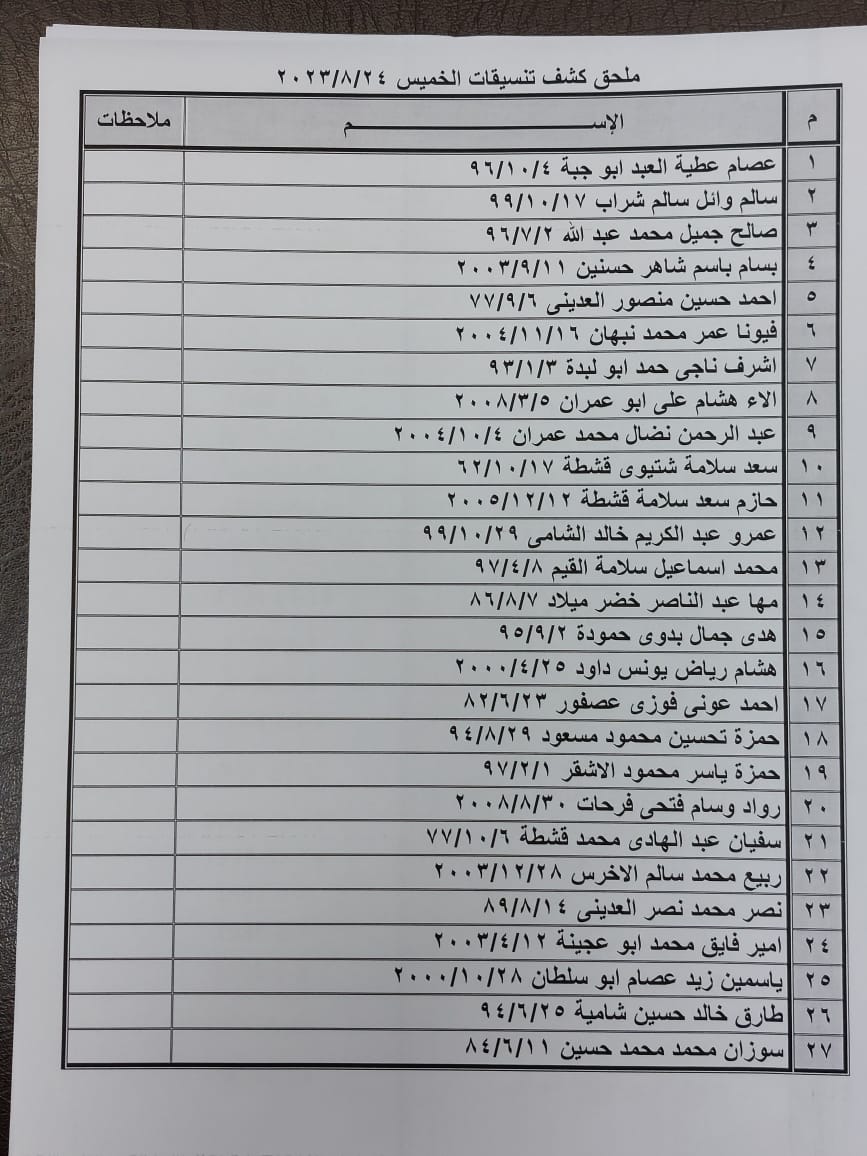 ملحق كشف تنسيقات الخميس ٢٠٢٣/٨/٢٤
م الإســـــــــــــــــــــــــم ملاحظات
١ عصام عطية العبد ابو جبة ٩٦/١٠/٤
٢ سالم وائل سالم شراب ٩٩/١٠/١٧
٣ صالح جميل محمد عبد الله ٩٦/٧/٢
٤ بسام باسم شاهر حسنين ٢٠٠٣/٩/١١
٥ احمد حسين منصور العدينى ٧٧/٩/٦
٦ فيونا عمر محمد نبهان ٢٠٠٤/١١/١٦
٧ اشرف ناجى حمد ابو لبدة ٩٣/١/٣
٨ الاء هشام على ابو عمران ٢٠٠٨/٣/٥
٩ عبد الرحمن نضال محمد عمران ٢٠٠٤/١٠/٤
١٠ سعد سلامة شتيوى قشطة ٦٢/١٠/١٧
١١ حازم سعد سلامة قشطة ٢٠٠٥/١٢/١٢
١٢ عمرو عبد الكريم خالد الشامى ٩٩/١٠/٢٩
١٣ محمد اسماعيل سلامة القيم ٩٧/٤/٨
١٤ مها عبد الناصر خضر ميلاد ٨٦/٨/٧
١٥ هدى جمال بدوى حمودة ٩٥/٩/٢
١٦ هشام رياض يونس داود ٢٠٠٠/٤/٢٥
١٧ احمد عونى فوزى عصفور ٨٢/٦/٢٣
١٨ حمزة تحسين محمود مسعود ٩٤/٨/٢٩
١٩ حمزة ياسر محمود الاشقر ٩٧/٢/١
٢٠ رواد وسام فتحى فرحات ٢٠٠٨/٨/٣٠
٢١ سفيان عبد الهادى محمد قشطة ٧٧/١٠/٦
٢٢ ربيع محمد سالم الاخرس ٢٠٠٣/١٢/٢٨
٢٣ نصر محمد نصر العدينى ٨٩/٨/١٤
٢٤ امير فايق محمد ابو عجينة ٢٠٠٣/٤/١٢
٢٥ ياسمين زيد عصام ابو سلطان ٢٠٠٠/١٠/٢٨
٢٦ طارق خالد حسين شامية ٩٤/٦/٢٥
٢٧ سوزان محمد محمد حسين ٨٤/٦/١١